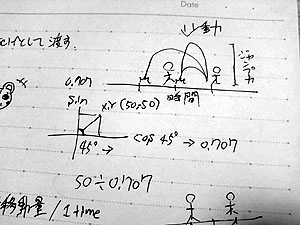 Date
として渡す。
動
0.707
sin
x,y (50,50)
時間
45° →
cos 45° → 0.707
50÷0.707
移動量 / 1 time